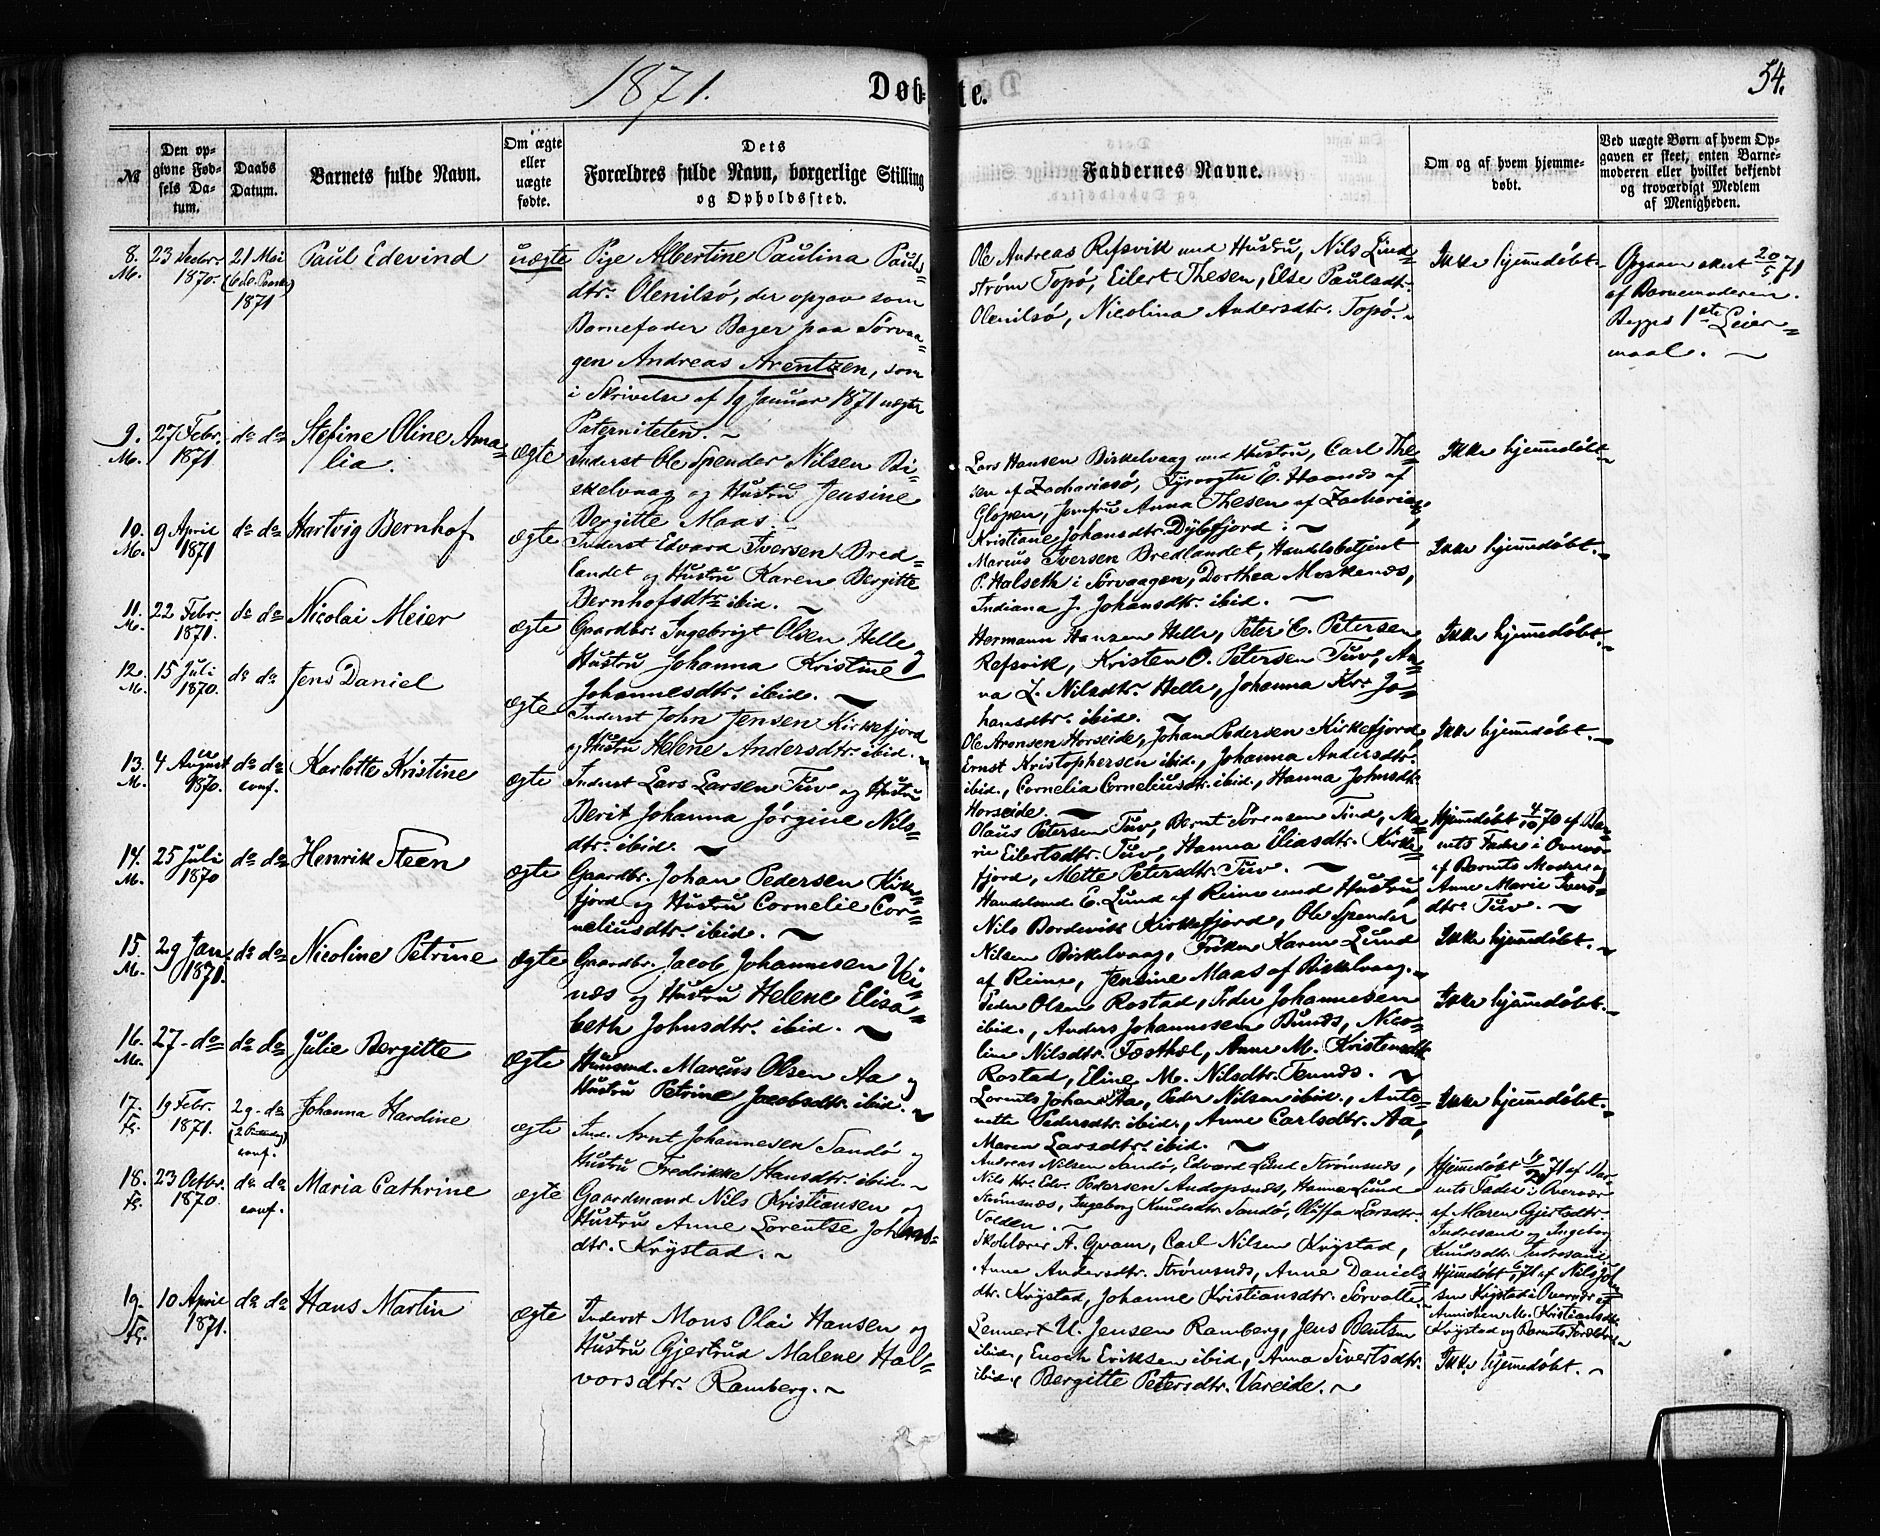 1871.
Døbte.
54.
№
Den opgivne Fødsels Datum.
Daabs Datum.
Barnets fulde Navn.
Om ægte eller uægte fødte.
Dets Forældres fulde Navn, borgerlige Stilling og Opholdssted.
Faddernes Navne.
Om og af hvem hjemmedøbt.
Ved uægte Børn af hvem Opgaven er skeet, enten Barnemoderen eller hvilket bekjendt og troværdigt Medlem af Menigheden.
8.
M.
23 Decbr.
1870.
21 Mai
1871
Paul Edevind
uægte
Pige Albertine Paulina Pauls=
dtr. Olenilsø, der opgav som
Barnefader Bager paa Sørvaa=
gen Andreas Arentzen, som
i Skrivelse af 19 Januar 1871 nægter
Paterniteten. ~
Ole Andreas Refsvik med Hustru, Nils Lind=
strøm Topø, Eilert Thesen, Else Paulsdtr.
Olenilsø, Nicolina Andersdtr. Topø. ~
Ikke hjemmedøbt.
Opgaven skeet 20/5 71
af Barnemoderen.
Begges 1ste Leier=
maal. ~
9.
M.
27 Febr.
1871
do do
Stefine Oline Ama=
lia.
ægte
Inderst Ole Spender Nilsen Bi=
skelvaag og Hustru Jensine
Bergitte Maas. ~
Lars Hansen Birkelvaag med Hustru, Carl The=
sen af Zachariasø, E. Haanæs af
Glopen, Jomfru Anna Thesen af Zacharias=
Kristiane Johansdtr. Dybfjord. ~
Ikke hjemmedøbt. ~
10.
M.
9 April
1871
do do
Hartvig Bernhof
ægte
Inderst Edvard Iversen Bred=
landet og Hustru Karen Bergitte
Bernhofsdtr. ibid. ~
Marcus Iversen Bredlandet, Handelsbetjent
P. Halseth i Sørvaagen, Dorthea Moskenæs,
Indiana J. Johansdtr. ibid. ~
Ikke hjemmedøbt. ~
11.
M.
22 Febr.
1871.
do do
Nicolai Meier
ægte
Gaardbr. Ingebrigt Olsen Helle og
Hustru Johanna Kristine
Johannesdtr. ibid. ~
Hermann Hansen Helle, Peter C. Petersen
Refsvik, Kristen O. Petersen Tuv, An=
na L. Nilsdtr. Helle, Johanna Kr. Jo=
hansdtr. ibid. ~
Ikke hjemmedøbt. ~
12.
M.
15 Juli
1870.
do do
Jens Daniel
ægte
Inderst John Jensen Kirkefjord
og Hustru Helene Andersdtr. ibid. ~
Ole Aronsen Horseide, Johan Pedersen Kirkefjord,
Ernst Kristophersen ibid., Johanna Andersdtr.
ibid., Cornelia Corneliusdtr. ibid., Hanna Johnsdtr.
Horseide. ~
Ikke hjemmedøbt. ~
13.
M.
4 August
1870.
do do
conf.
Karlotte Kristine
ægte
Inderst Lars Larsen Tuv og Hustru
Berit Johanna Jørgine Nils=
dtr. ibid. ~
Olaus Petersen Tuv, Bernt Sørensen Tind, Ma=
rie Eilertsdtr. Tuv, Hanna Eliasdtr. Kirke=
fjord, Mette Petersdtr. Tuv. ~
Hjemmedøbt 4/10 70 af Bar=
nets Fader i Overvær
af Barnets Moder og
Anne Marie Ivers=
dtr. Tuv. ~
14.
M.
25 Juli
1870
do do
Henrik Steen
ægte
Gaardbr. Johan Pedersen Kirk=
fjord og Hustru Cornelie Cor=
neliusdtr. ibid. ~
Handelsmd. E. Lund af Reine med Hustru,
Nils Bordevik Kirkefjord, Ole Spender
Nilsen Birkelvaag, Frøken Karen Lund
af Reine, Jensine Maas af Birkelvaag. ~
Ikke hjemmedøbt. ~
15.
M.
29 Jan.
1871.
do do
Nicoline Petrine
ægte
Gaardbr. Jacob Johannesen Vei=
næs og Hustru Helene Elisa=
beth Johnsdtr. ibid. ~
Peder Olsen Rostad, Peder Johannesen
ibid., Anders Johannesen Bunæs, Nico=
line Nilsdtr. Fæsthæl, Anne M. Kristensdtr.
Rostad, Eline M. Nilsdtr. Tennæs. ~
Ikke hjemmedøbt. ~
16.
M.
27 - do
do do
Julie Bergitte
ægte
Huusmd. Marcus Olsen Aa og
Hustru Petrine Jacobsdtr. ibid. ~
Lorents Johansen Aa, Peder Nilsen ibid., Anto=
nette Pedersdtr. ibid., Anne Carlsdtr. Aa,
Maren Larsdtr. ibid. ~
Ikke hjemmedøbt. ~
17.
Fl.
19 Febr.
1871.
29 - do
conf.
Johanna Hardine
ægte
Ind. Arnt Johannesen Sandø og
Hustru Fredrikke Hansdtr. ibid. ~
Andreas Nilsen Sandø, Edvard Lund Strømsnæs,
Nils Kr. Edv. Pedersen Andopsnæs, Hanna Lund
Strømsnæs, Ingeborg Knudsdtr. Sandø, Oliffa Larsdtr.
Volden. ~
Hjemmedøbt 71 af Bar=
nets Fader i Overvær
af Maren Gjertsdtr.
Indresand og Ingeborg
Knudsdtr. Indresand.
18.
Fl.
23 Octbr.
1870.
do do
conf.
Maria Cathrine
ægte
Gaardmand Nils Kristiansen og
Hustru Anne Lorentse Johans=
dtr. Krystad. ~
Skolelærer A. Qvam, Carl Nilsen Krystad,
Anne Andersdtr. Strømsnæs, Anne Daniels=
dtr. Krystad, Johanne Kristiansdtr. Sørvalle. ~
Hjemmedøbt 71 af Nils Joh=
sen Krystad i Overvær af
M. Kristiansdtr.
Krystad og Barnets Forældre. ~
19.
Fl.
10 April
1871.
do do
Hans Martin
ægte
Inderst Mons Olai Hansen og
Hustru Gjertrud Malene Hal=
vorsdtr. Ramberg. ~
Lennert U. Jensen Ramberg, Jens Bentsen
ibid., Enoch Eriksen ibid., Anna Sivertsdtr.
ibid., Bergitte Petersdtr. Vareide. ~
Ikke hjemmedøbt. ~